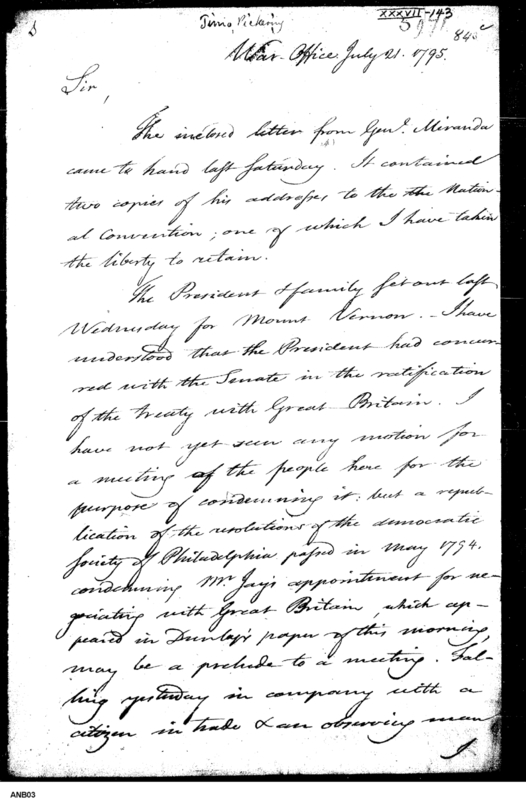 Timo. Pickering
XXXVII-143
War-Office July 21. 1795.
Sir,
The inclosed letter from Genl. Miranda
came to hand last Saturday. It contained
two copies of his addresses to the the Nation-
al Convention; one of which I have taken
the liberty to retain.
The President & family set out last
Wednesday for Mount Vernon. - I have
understood that the President had concur
red with the Senate in the ratification
of the treaty with Great Britain. I
have not yet seen any motion for
a meeting of the people here for the
purpose of condemning it: but a repub-
lication of the resolutions of the democratic
society of Philadelphia passed in May 1794.
condemning Mr Jay's appointment for ne-
gociating with Great Britain, which ap-
peared in Dunlap's paper of this morning,
may be a prelude to a meeting. Fal-
ling yesterday in company with a
citizen in trade & an observing man
I
ANB03